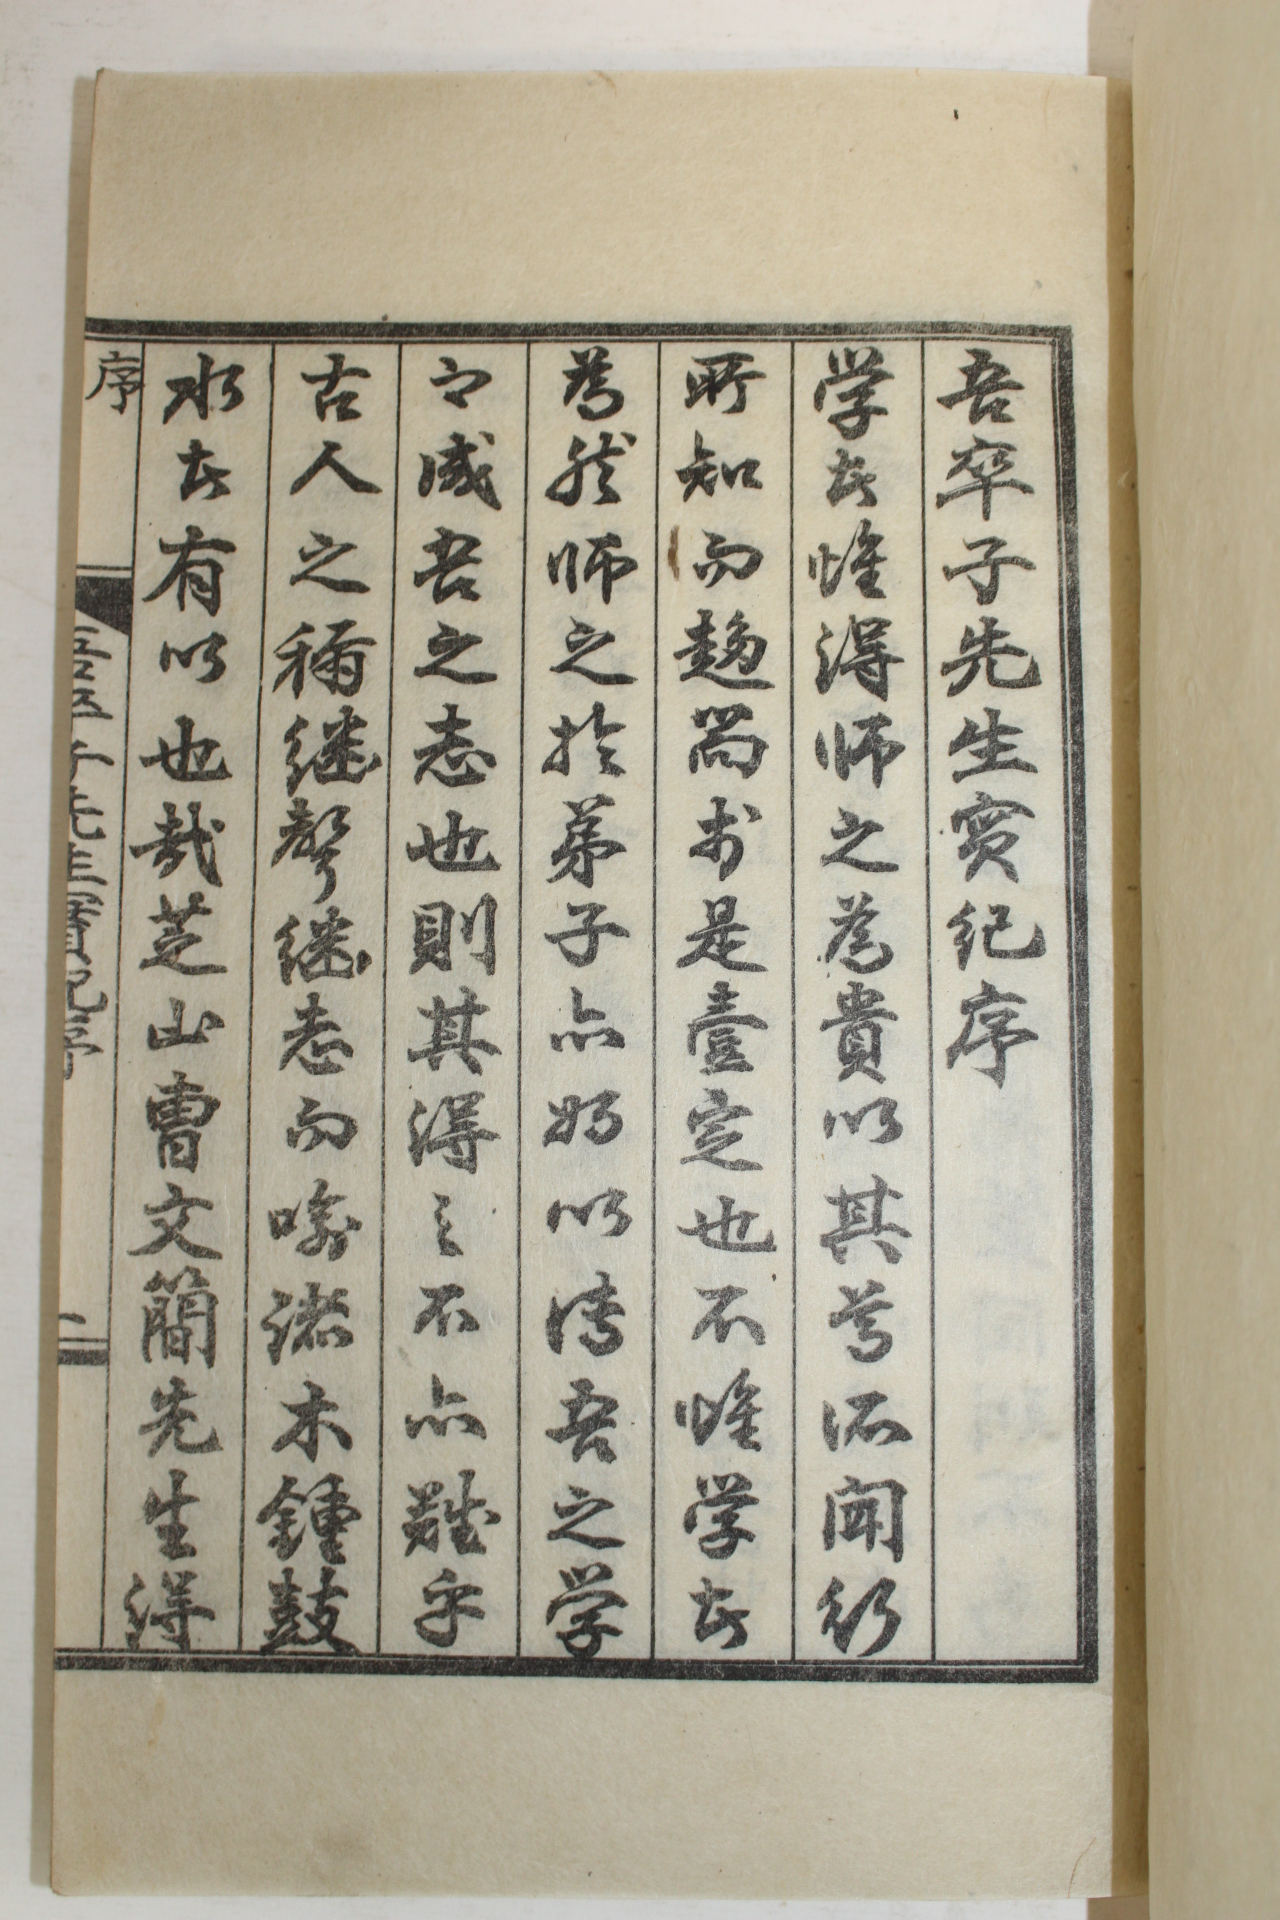 吾卒子先生實紀序
学者惟得師之為貴以其尊所聞行
所知而趍尚於是壹定也不惟学者
為然師之於弟子亦好以傳吾之学
成吾之志也則其得之不亦難乎
古人之稱継聲継志而喻諸木鍾鼓
水者有以也哉芝山曺文簡先生得
序